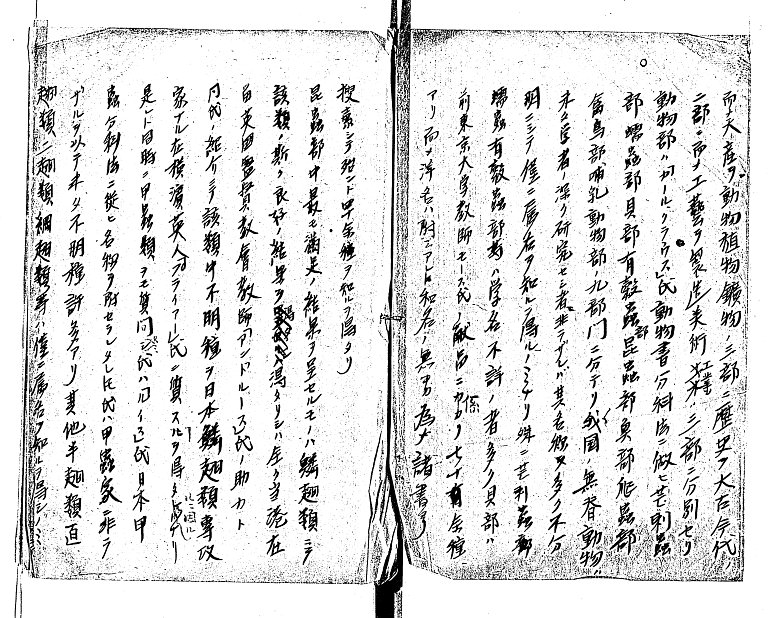 而テ天産ヲ動物植物鑛物ノ三部ニ歴史ヲ太古今代ノ
二部ニ而メ工藝ヲ製造美術工業ノ三部ニ分別セリ
動物部ハカールクラウス氏動物書分科法ニ倣ヒ芒刺蟲
部蠕蟲部貝部有殼蟲部昆蟲部魚部爬蟲部
禽鳥部哺乳動物部ノ九部門ニ分テリ我國無脊動物ハ
未タ学者ノ深ク研究セシ者非ザレバ其名称又多ク不分
明ニシテ僅ニ属名ヲ知ルヲ得ルノミナリ殊ニ芒刺蟲部
蠕蟲有殼蟲部等ハ学名不詳ノ者多ク貝部ハ
前東京大学教師モース氏ノ献品ニ係リ七百有余種
アリ而メ洋名ハ附シアレトモ和名ノ無キ為メ諸書ヲ
捜索シテ殆ント早余種ヲ知ルヲ得タリ
昆蟲部中最モ満足ノ結果ヲ呈セルモノハ鱗翅類ニテ
該類ノ斯ク良好ノ結果ヲ得タリシハ全ク当港在
留英国監督教會教師アンドルース氏ノ助力ト
同氏ノ紹介ニテ該類中不明種ヲ日本鱗翅類専攻
家ナル在横濱英人プライアー氏ニ質スルヲ得タルニ因ル
是ト同時ニ甲蟲類ヲモ質問セシニ氏ハルイス氏日本甲
蟲分科法ニ従ヒ名称ヲ附セラレタレ氏ハ甲蟲家ニ非ラ
ザルヲ以テ未タ不明種許多アリ其他半翅類直
翅類二翅類網翅類等ハ僅ニ属名ヲ知ルヲ得シノミ